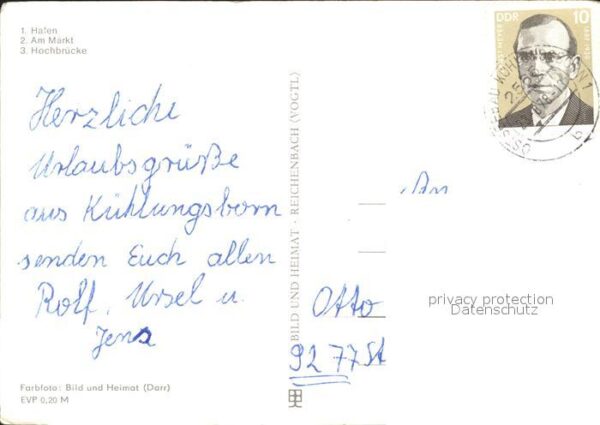 1. Hafen
2. Am Markt
3. Hochbrücke
Herzliche
Urlaubsgrüße
aus Kühlungsborn
senden Euch allen
Rolf, Ursel u.
Jens
Farbfoto: Bild und Heimat (Darr)
EVP 0,20 M
BILD UND HEIMAT · REICHENBACH (VOGTL)
DDR 10
An
Otto
92 77 St
privacy protection
Datenschutz